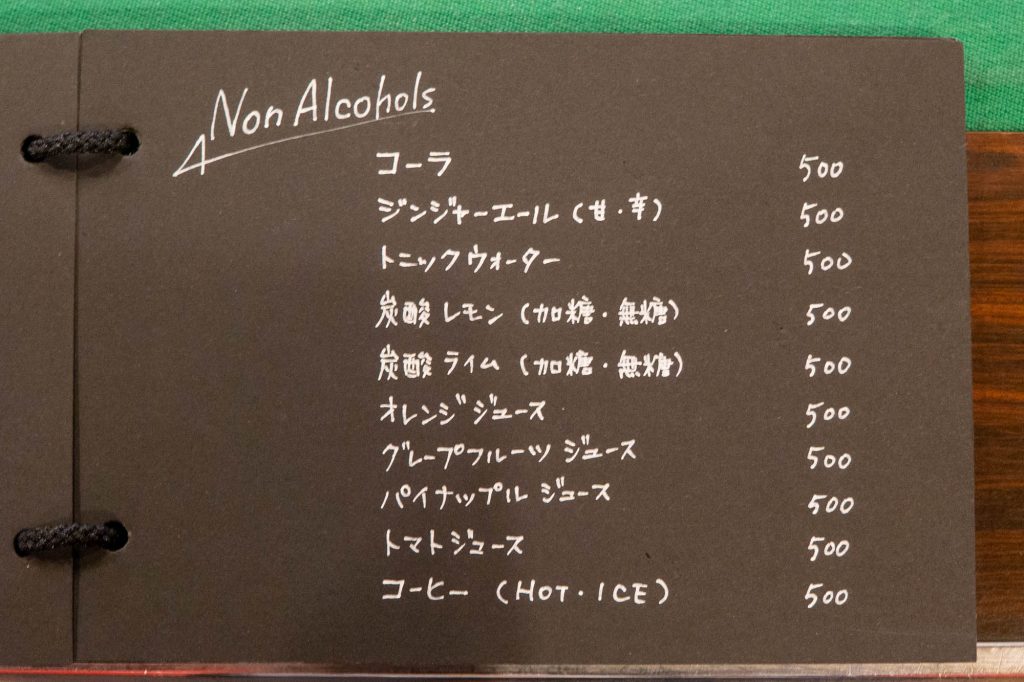 Non Alcohols
コーラ 500
ジンジャーエール (甘・辛) 500
トニックウォーター 500
炭酸 レモン (加糖・無糖) 500
炭酸 ライム (加糖・無糖) 500
オレンジジュース 500
グレープフルーツ ジュース 500
パイナップル ジュース 500
トマトジュース 500
コーヒー (HOT・ICE) 500